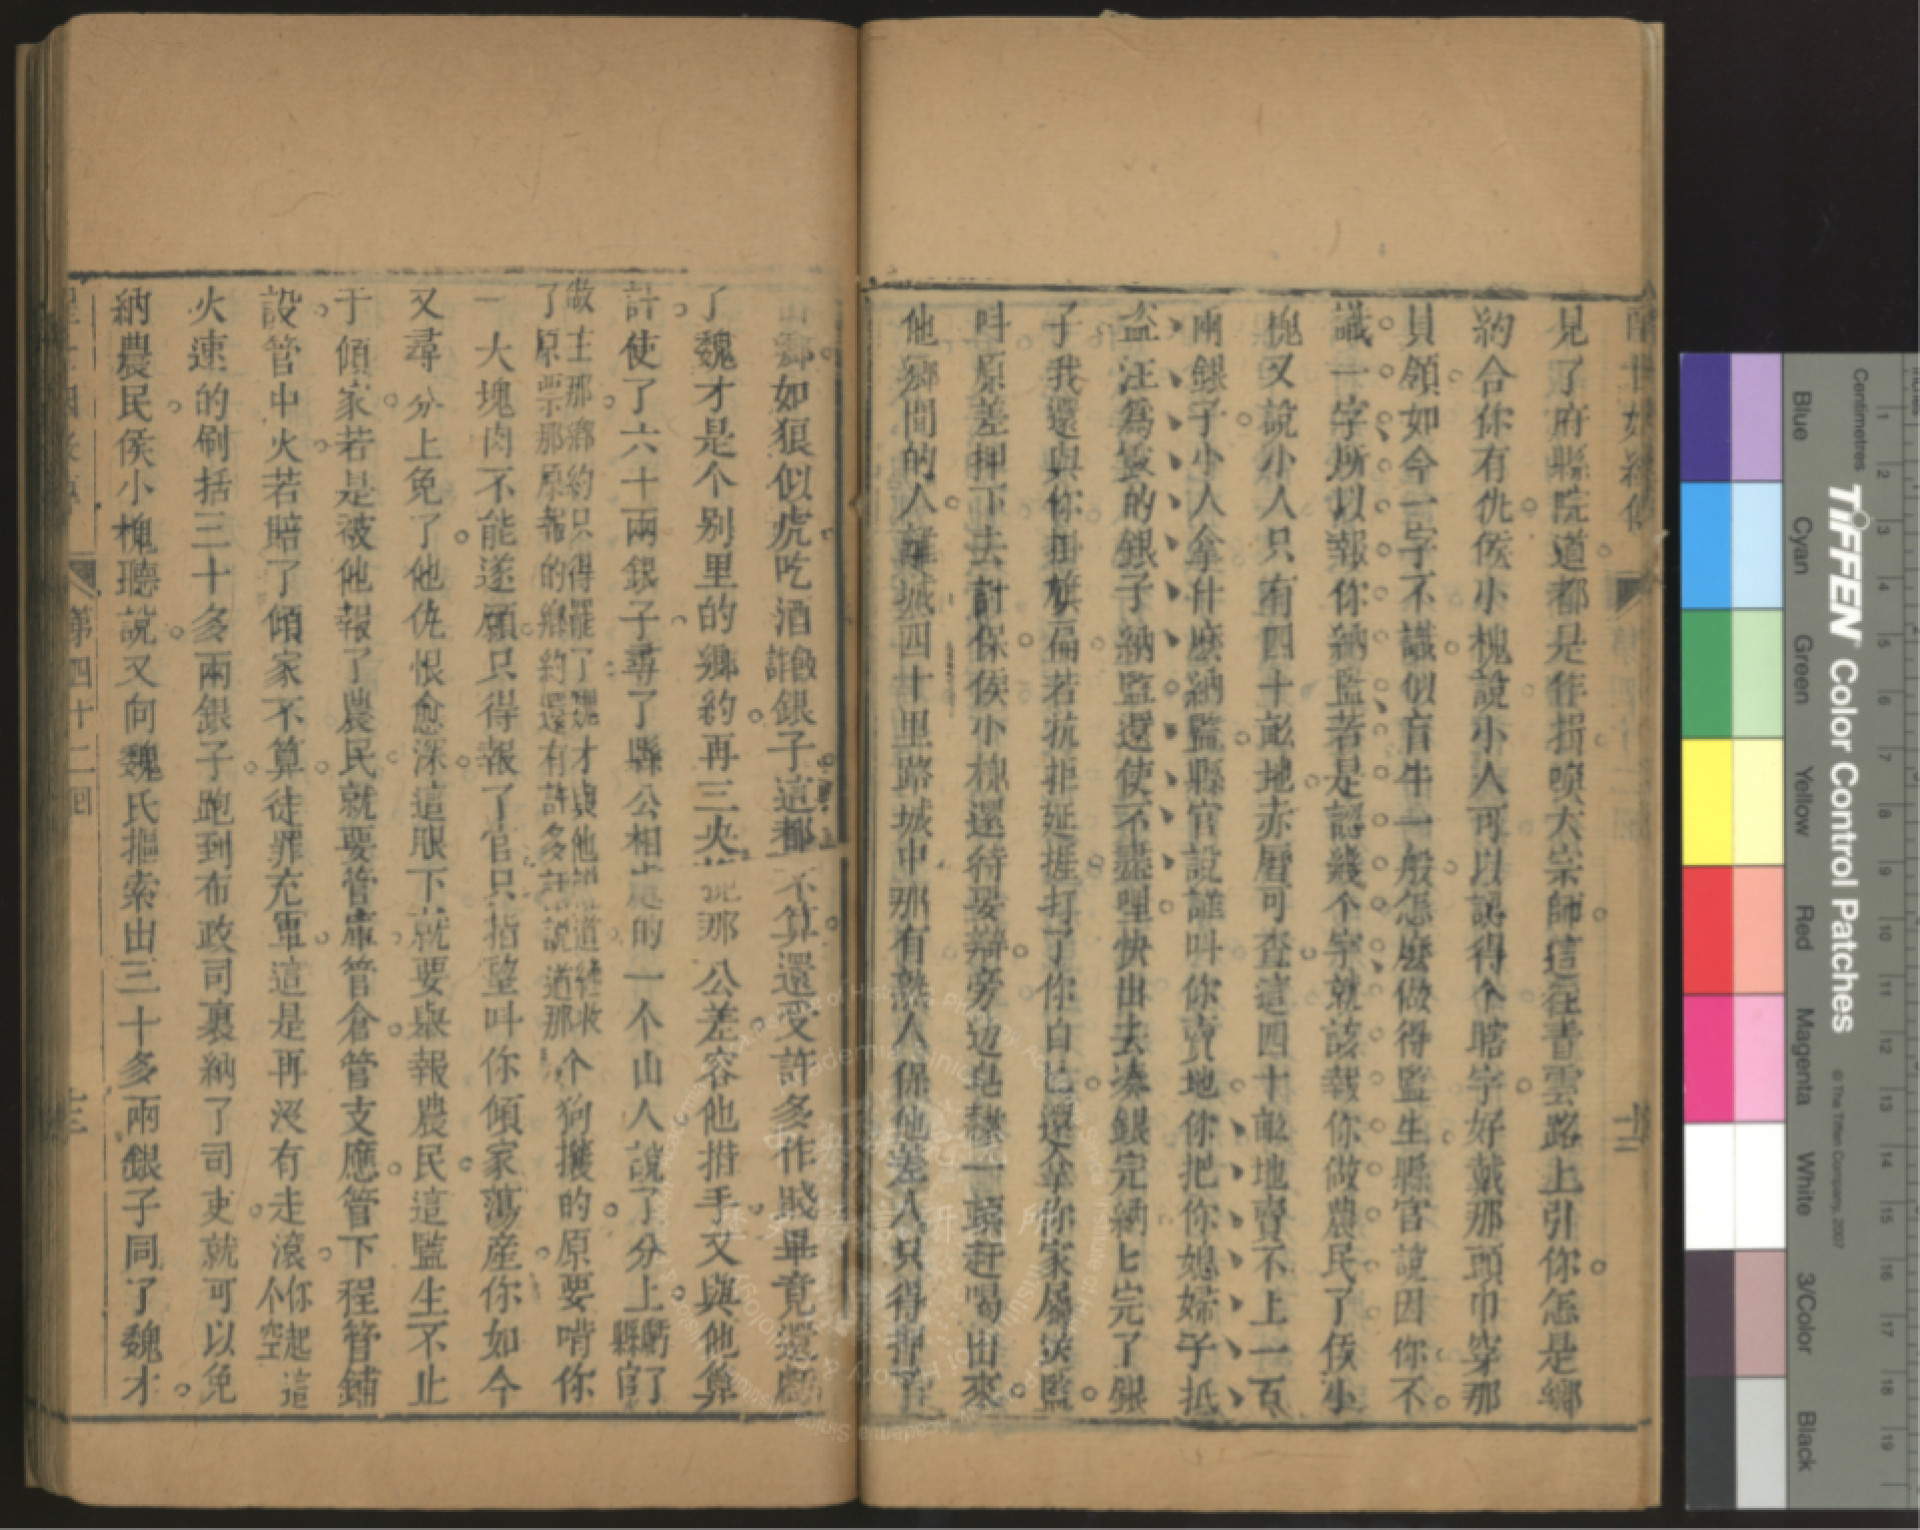 見了府縣院道都是作揖唤大宗師這往青雲路上引你怎是鄉
約合你有仇侯小槐說小人可以認得个瞎字好戴那頭巾穿那
貝領如今一字不識似盲牛一般怎麽做得監生縣官說因你不
識一字所以報你納監若是認幾个字就該報你做農民了侯小
槐又說小人只有四十畝地赤曆可查這四十畝地賣不上一百
兩銀子小人拿什麽納監縣官說誰叫你賣地你把你媳婦子抵
盗汪爲露的銀子納監還使不盡哩快出去凑銀完納匕完了銀
子我還與你掛旗扁若抗拒延捱打了你自己還拿你家屬送監
叫原差押下去討保侯小槐還待要辯旁边皂隸一頓赶喝出來
他鄉間的人離城四十里路城中那有熟人保他差人只得押了
鄉如狼似虎吃酒詐銀子這都不算還受許多作賤畢竟還虧
了魏才是个别里的鄉約再三央 那公差容他措手又與他算
計使了六十兩銀子尋了縣公相處的一个山人說了分上縣官虧了
做主那鄉約只得罷了魏才與他 道 來
了原票那原報的鄉約還有許多 說道那个狗攮的原要啃你
一大塊肉不能遂願只得報了官只指望叫你傾家蕩産你如今
又尋分上免了他仇恨愈深這眼下就要舉報農民這監生不止
于傾家若是被他報了農民就要管庫管倉管支應管下程管鋪
設管中火若賠了傾家不算徒罪充軍這是再沒有走滾你起這个空
火速的刷括三十多兩銀子跑到布政司裹納了司吏就可以免
納農民侯小槐聽說又向魏氏摳索出三十多兩銀子同了魏才
第四十二回